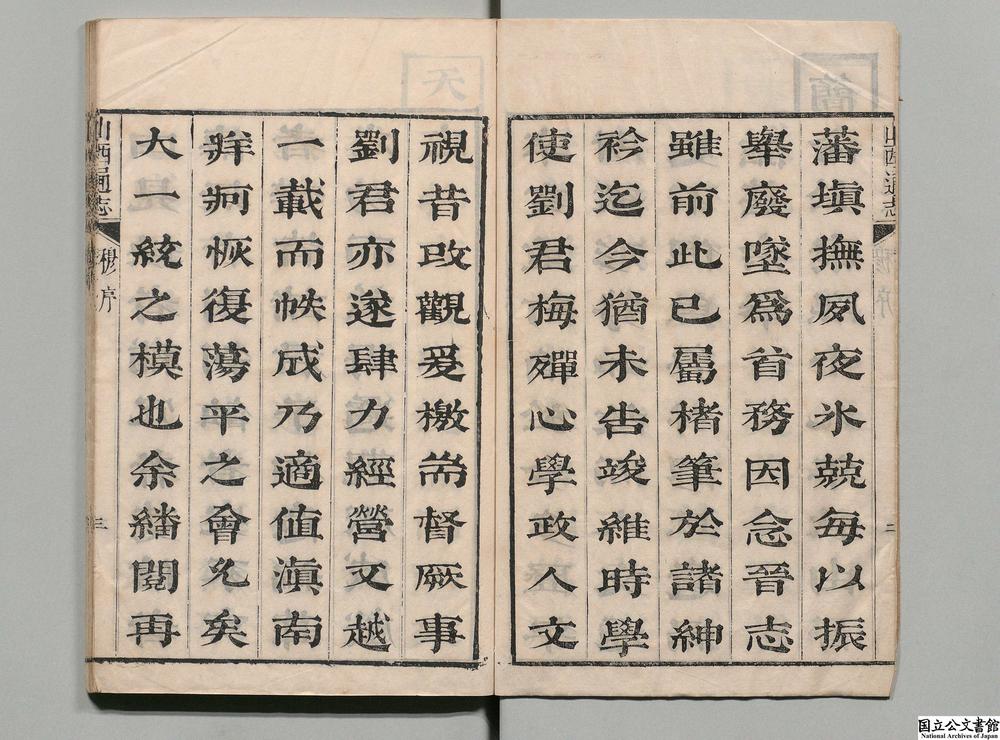 山西通志
序
二
藩塡撫夙夜氷兢每以振
舉廢墜爲首務因念晉志
雖前此已屬楮筆於諸紳
衿迄今猶未告竣維時學
使劉君梅殫心學政人文
視昔改觀爰檄耑督厥事
劉君亦遂肆力經營文越
一載而帙成乃適值滇南
牂牁恢復蕩平之會允矣
大一統之模也余繙閱再
山西通志
穆序
三
国立公文書館
National Archives of Japan